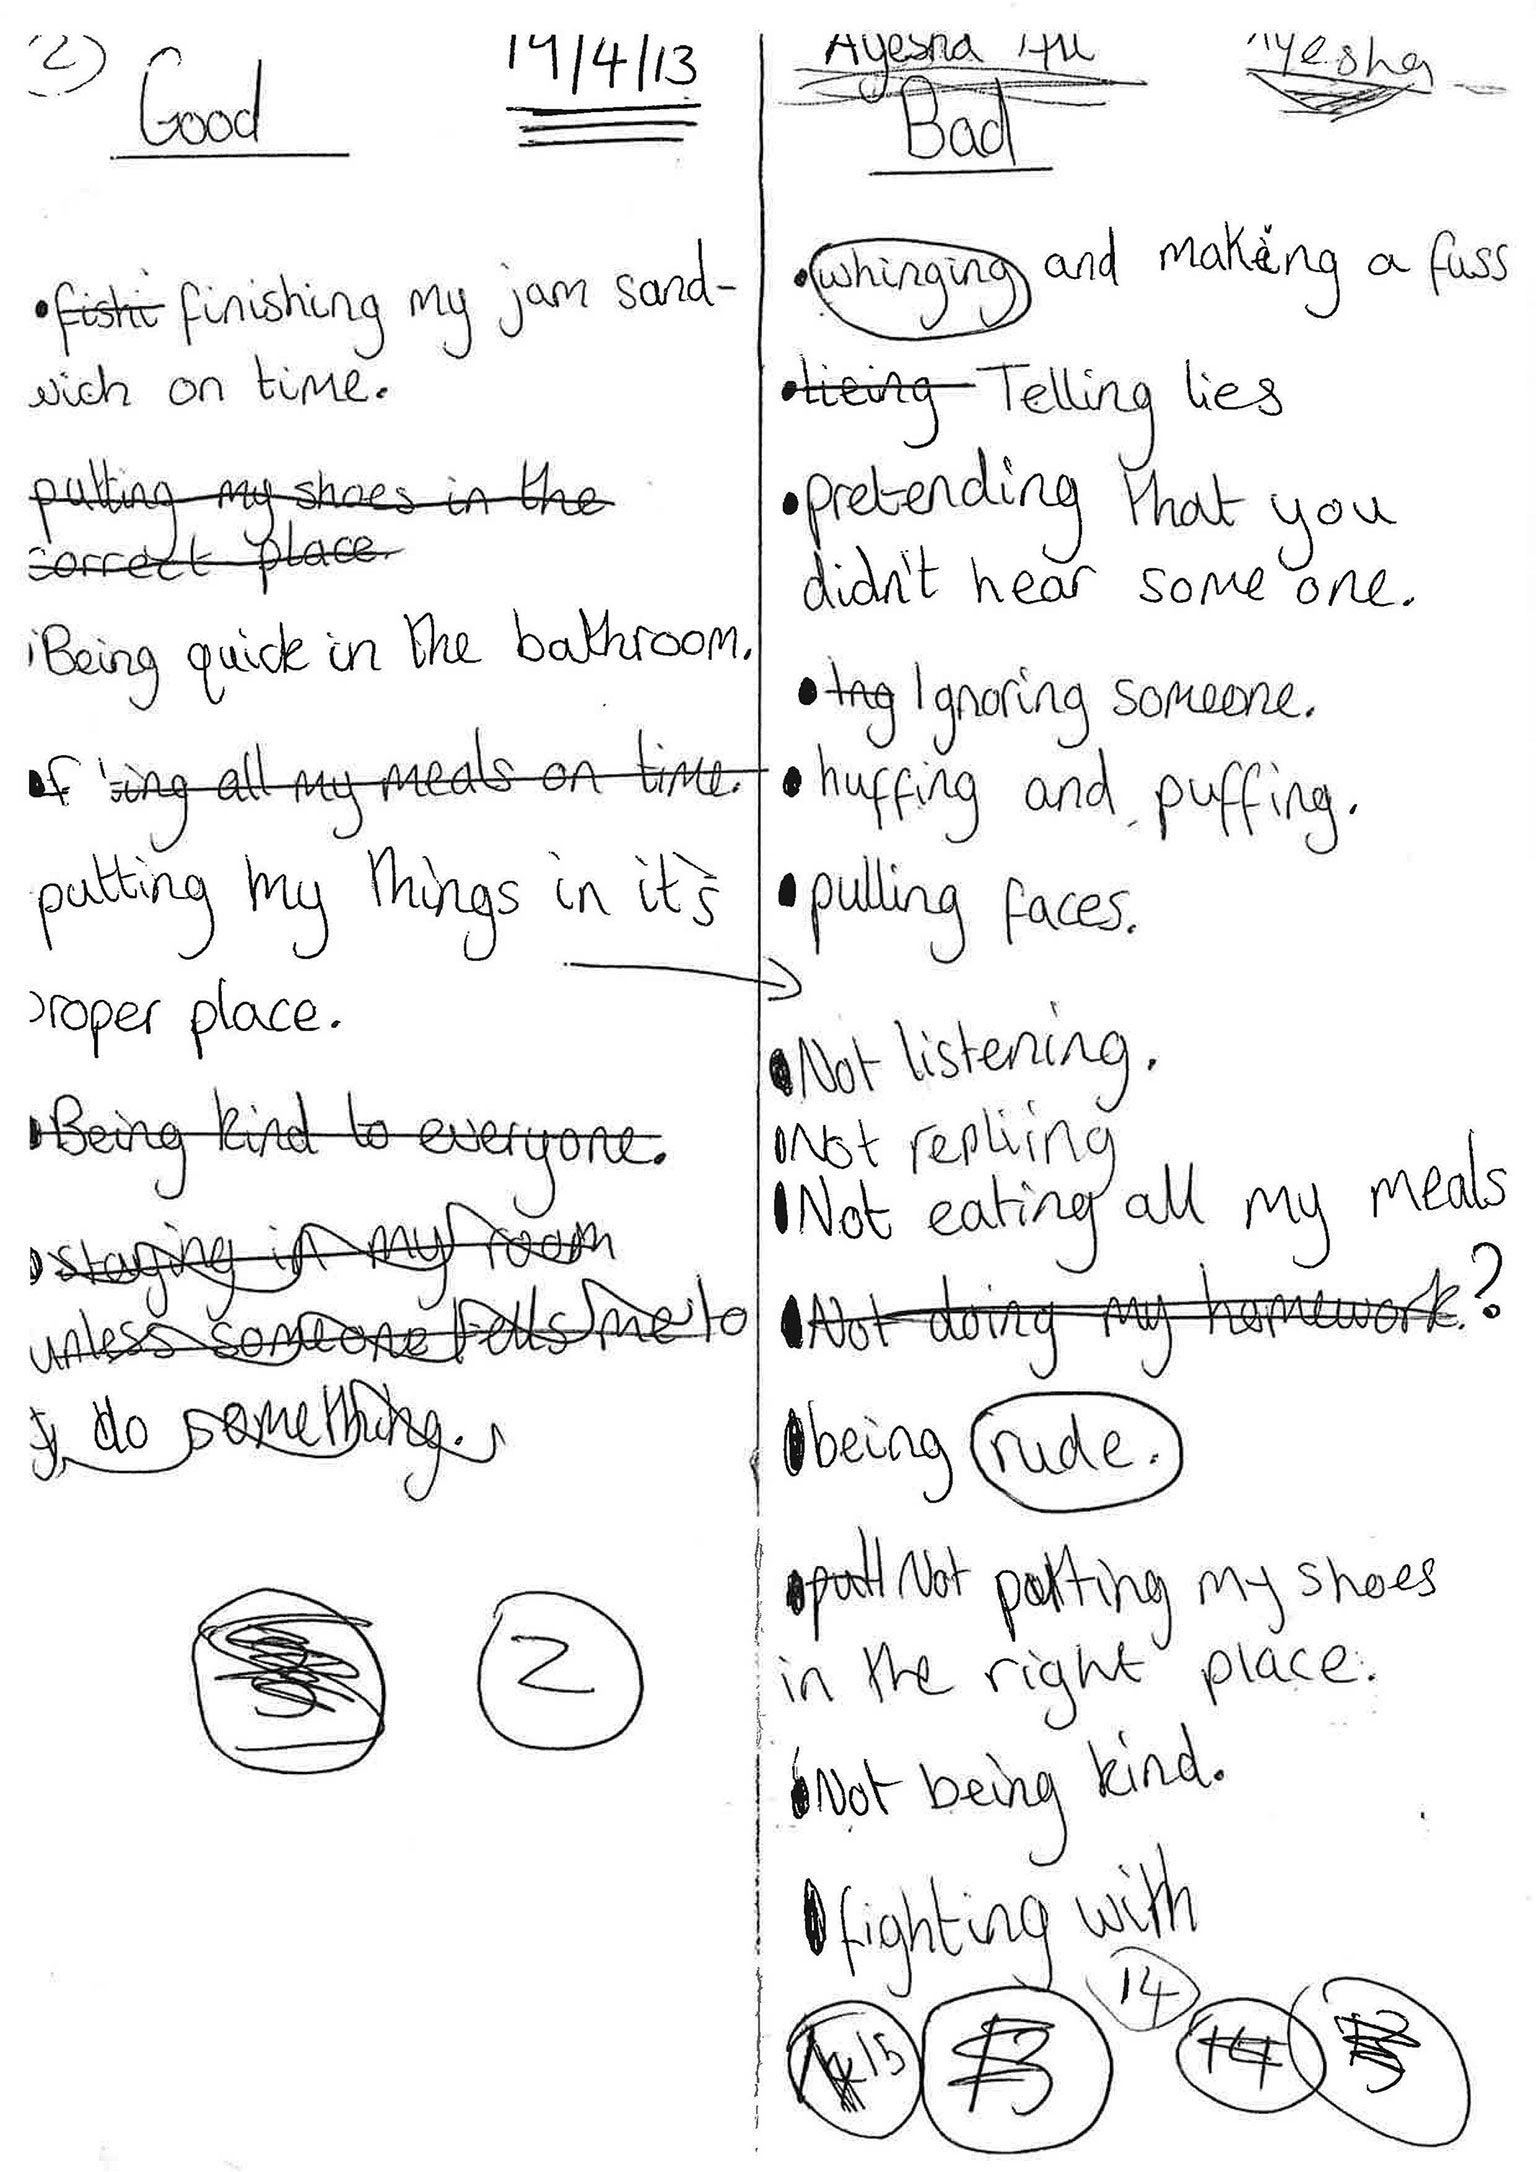 2
Good
19/4/13
fishi finishing my jam sand-
wich on time.
putting my shoes in the
correct place.
Being quick in the bathroom.
all my meals on time.
putting my things in it's
proper place.
Being kind to everyone.
staying in my room
unless someone tells me to
do something.
2
Ayesha Ali
Ayesha
Bad
whinging and making a fuss
lieing Telling lies
pretending that you
didn't hear some one.
Ing Ignoring someone.
huffing and puffing.
pulling faces.
Not listening.
Not repliing
Not eating all my meals
Not doing my homework.?
being rude.
putt Not putting my shoes
in the right place.
Not being kind.
fighting with
14
15
14